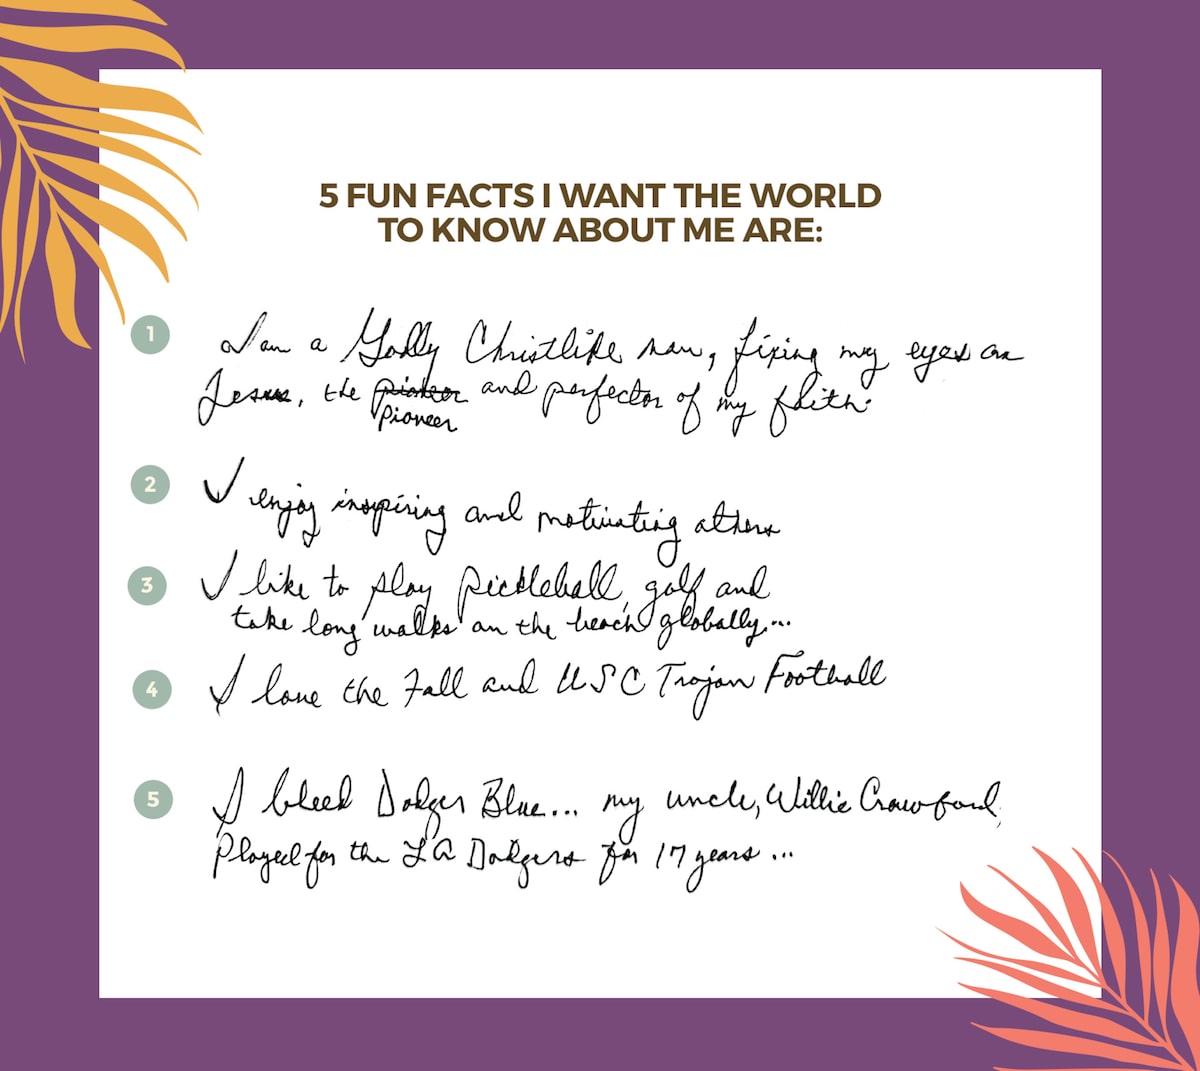 5 FUN FACTS I WANT THE WORLD
TO KNOW ABOUT ME ARE:
1 I am a Godly Christlike man, fixing my eyes on
Jesus, the pioneer and perfector of my faith.
pioneer
2 I enjoy inspiring and motivating others
3 I like to play pickleball, golf and
take long walks on the beach globally...
4 I love the Fall and USC Trojan Football
5 I bleed Dodger Blue... my uncle, Willie Crawford,
played for the LA Dodgers for 17 years...